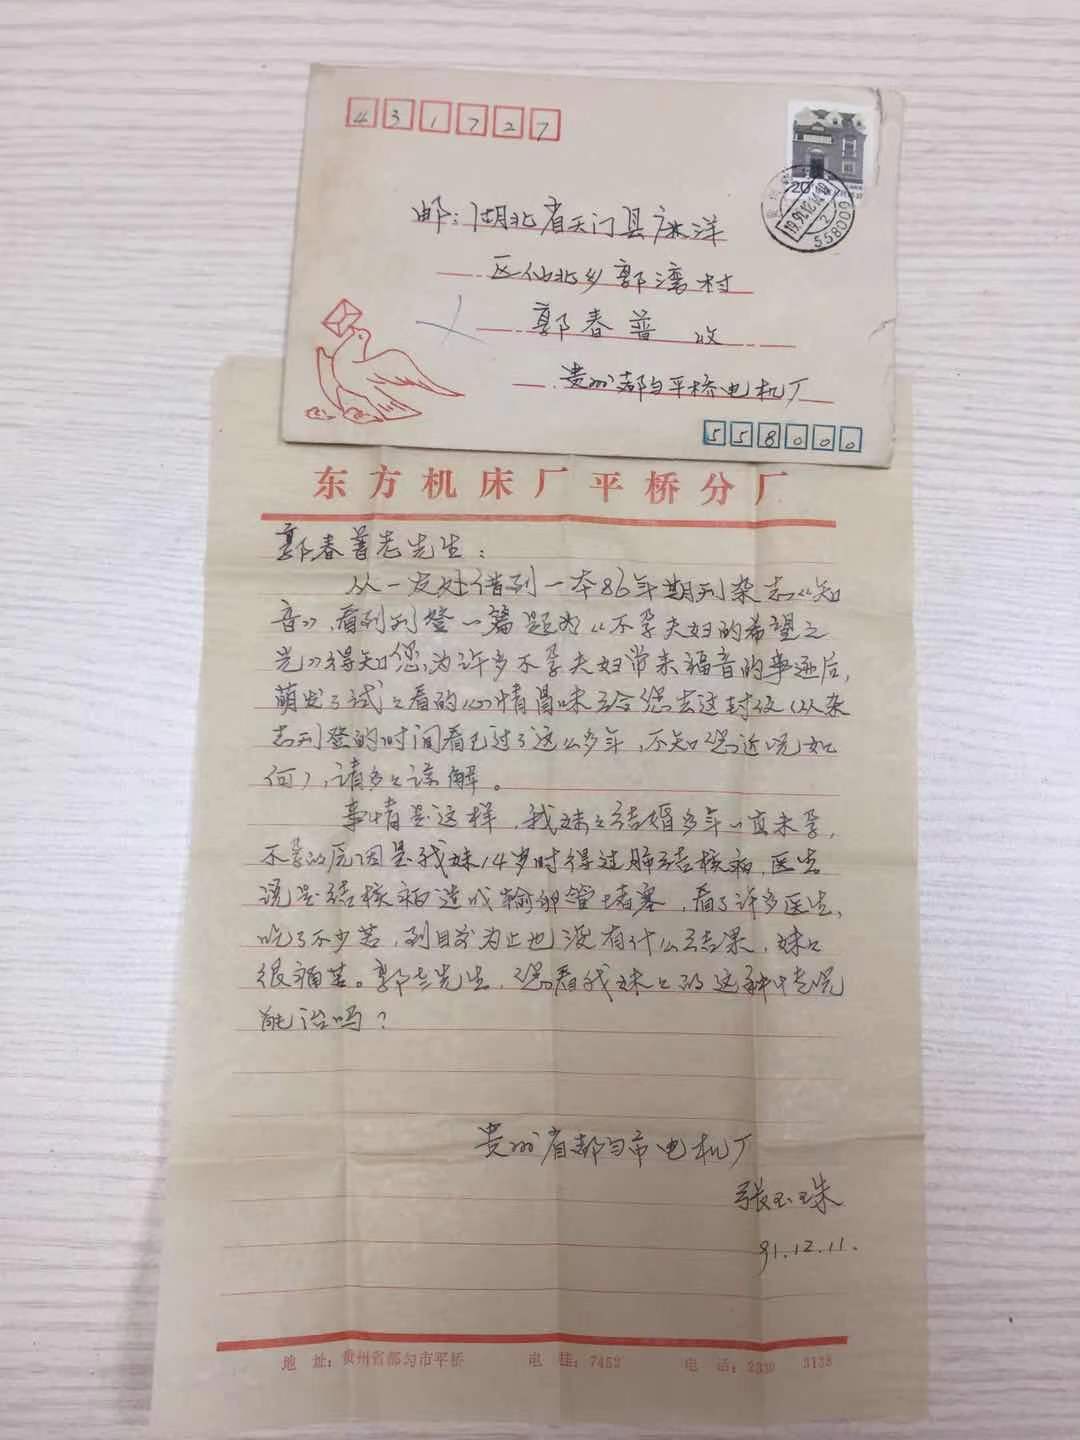 431727
邮：湖北省天门县麻洋
区仙北乡郭湾村
郭春普 收
贵州都匀平桥电机厂
558000
20
1991.12
558000
东方机床厂平桥分厂
郭春普老先生：
从一友处借到一本86年期刊杂志《知
音》，看到刊登一篇题为《不孕夫妇的希望之
光》得知您为许多不孕夫妇带来福音的事迹后，
萌发了试试看的心情冒昧给您去这封信（从杂
志刊登的时间看已过了这么多年，不知您近况如
何），请多多谅解。
事情是这样，我妹妹结婚多年一直未孕，
不孕的原因是我妹14岁时得过肺结核病，医生
说是结核病造成输卵管堵塞，看了许多医生，
吃了不少苦，到目前为止也没有什么结果，妹妹
很痛苦。郭老先生，您看我妹妹的这种情况
能治吗？
贵州省都匀市电机厂
张玉珠
91.12.11.
地 址：贵州省都匀市平桥 电 挂：7453 电 话：2339 3138